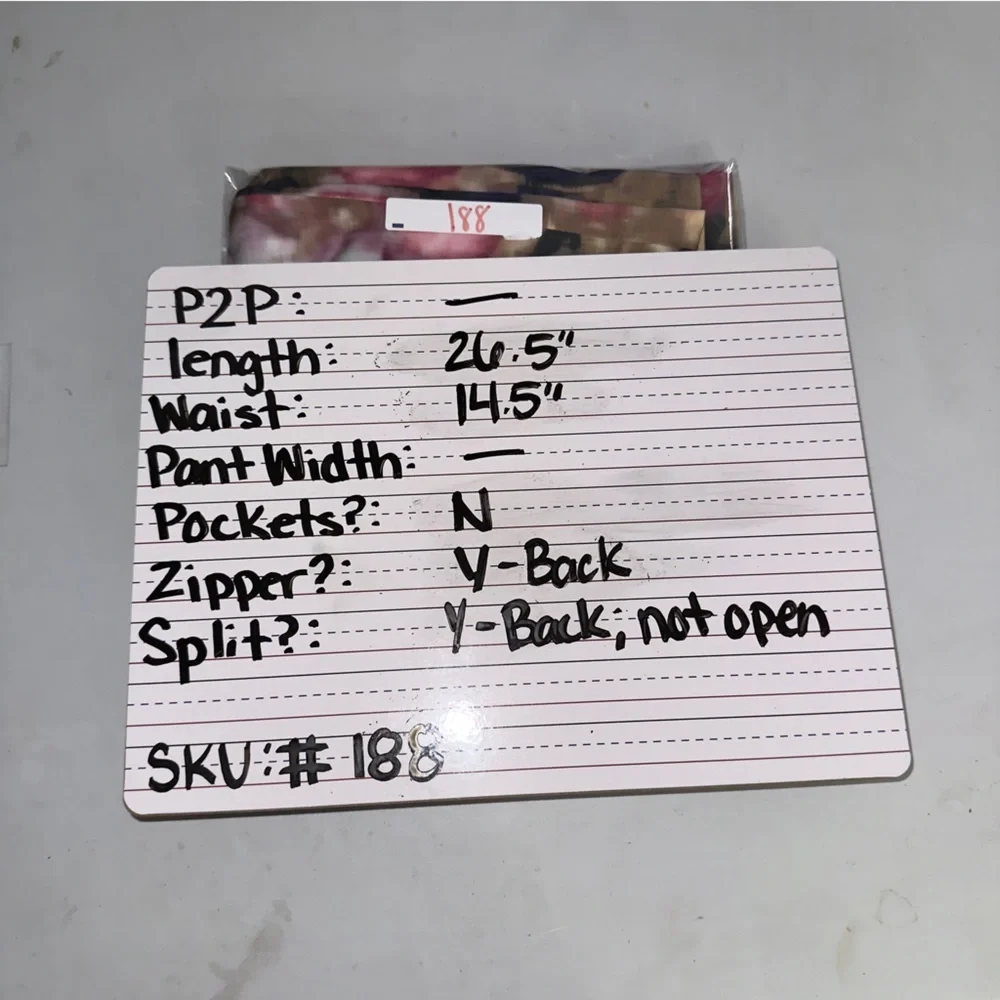 188
P2P: —
length: 26.5"
Waist: 14.5"
Pant Width: —
Pockets?: N
Zipper?: Y-Back
Split?: Y-Back; not open
SKU:# 188